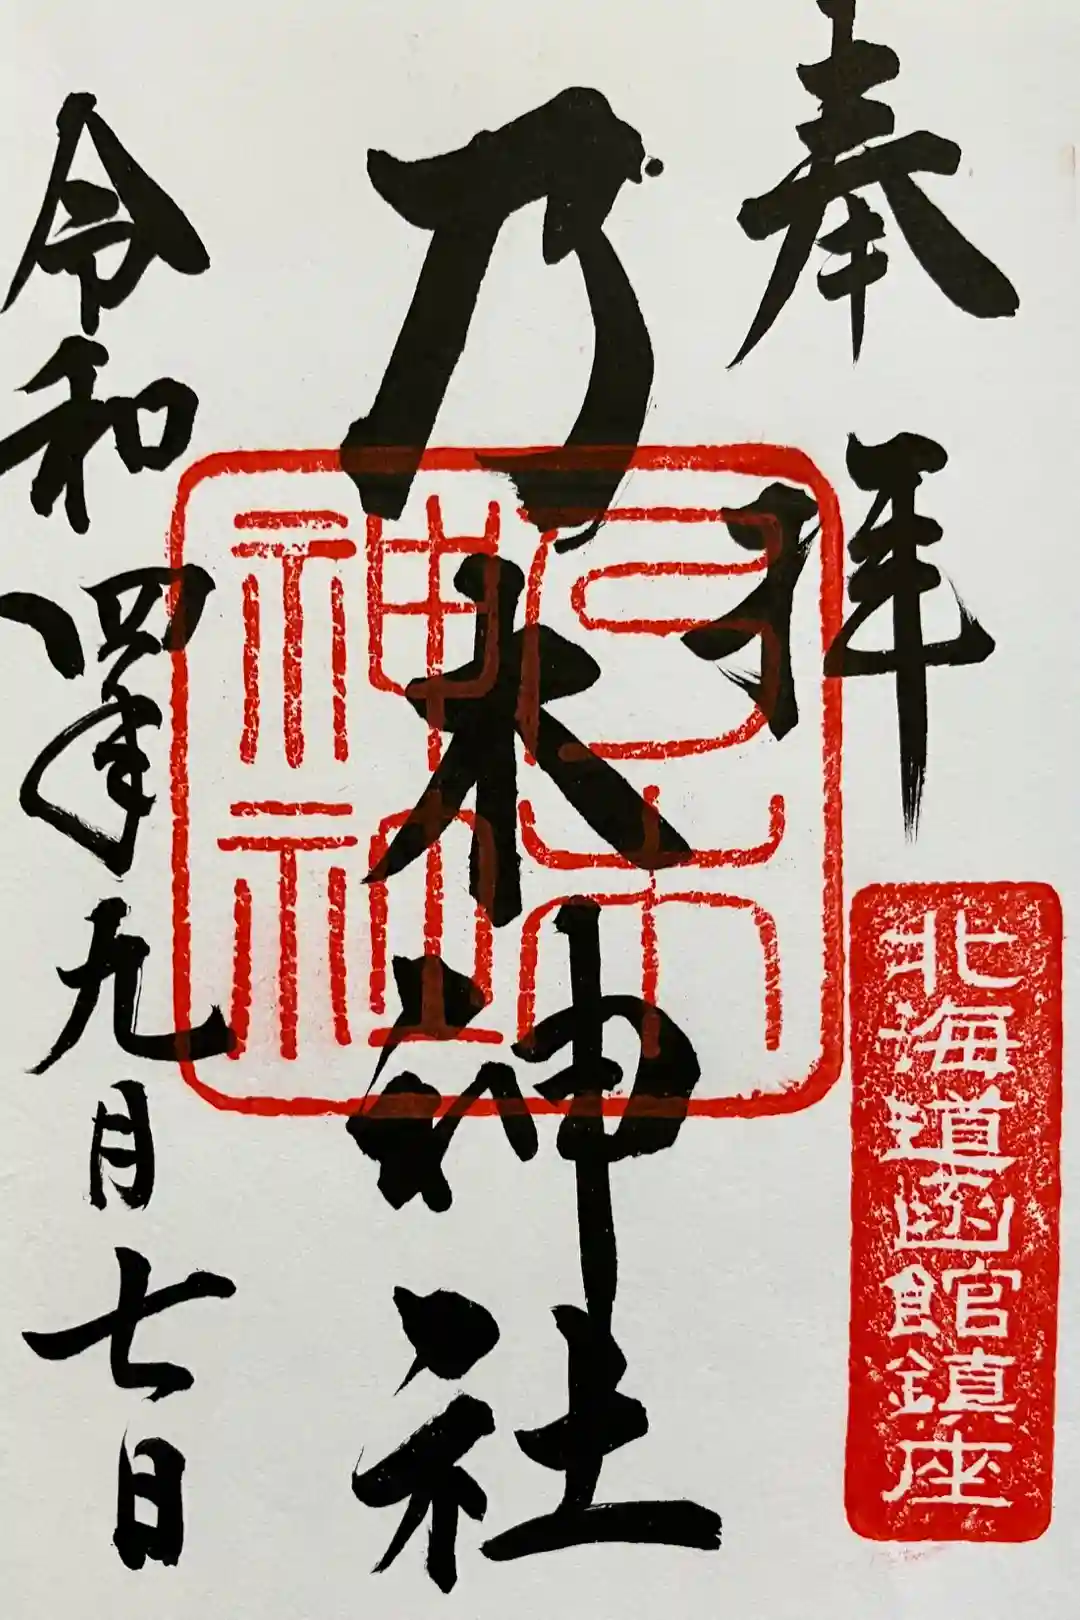 奉拝
北海道函館鎮座
乃木神社
乃木神社
令和四年九月七日